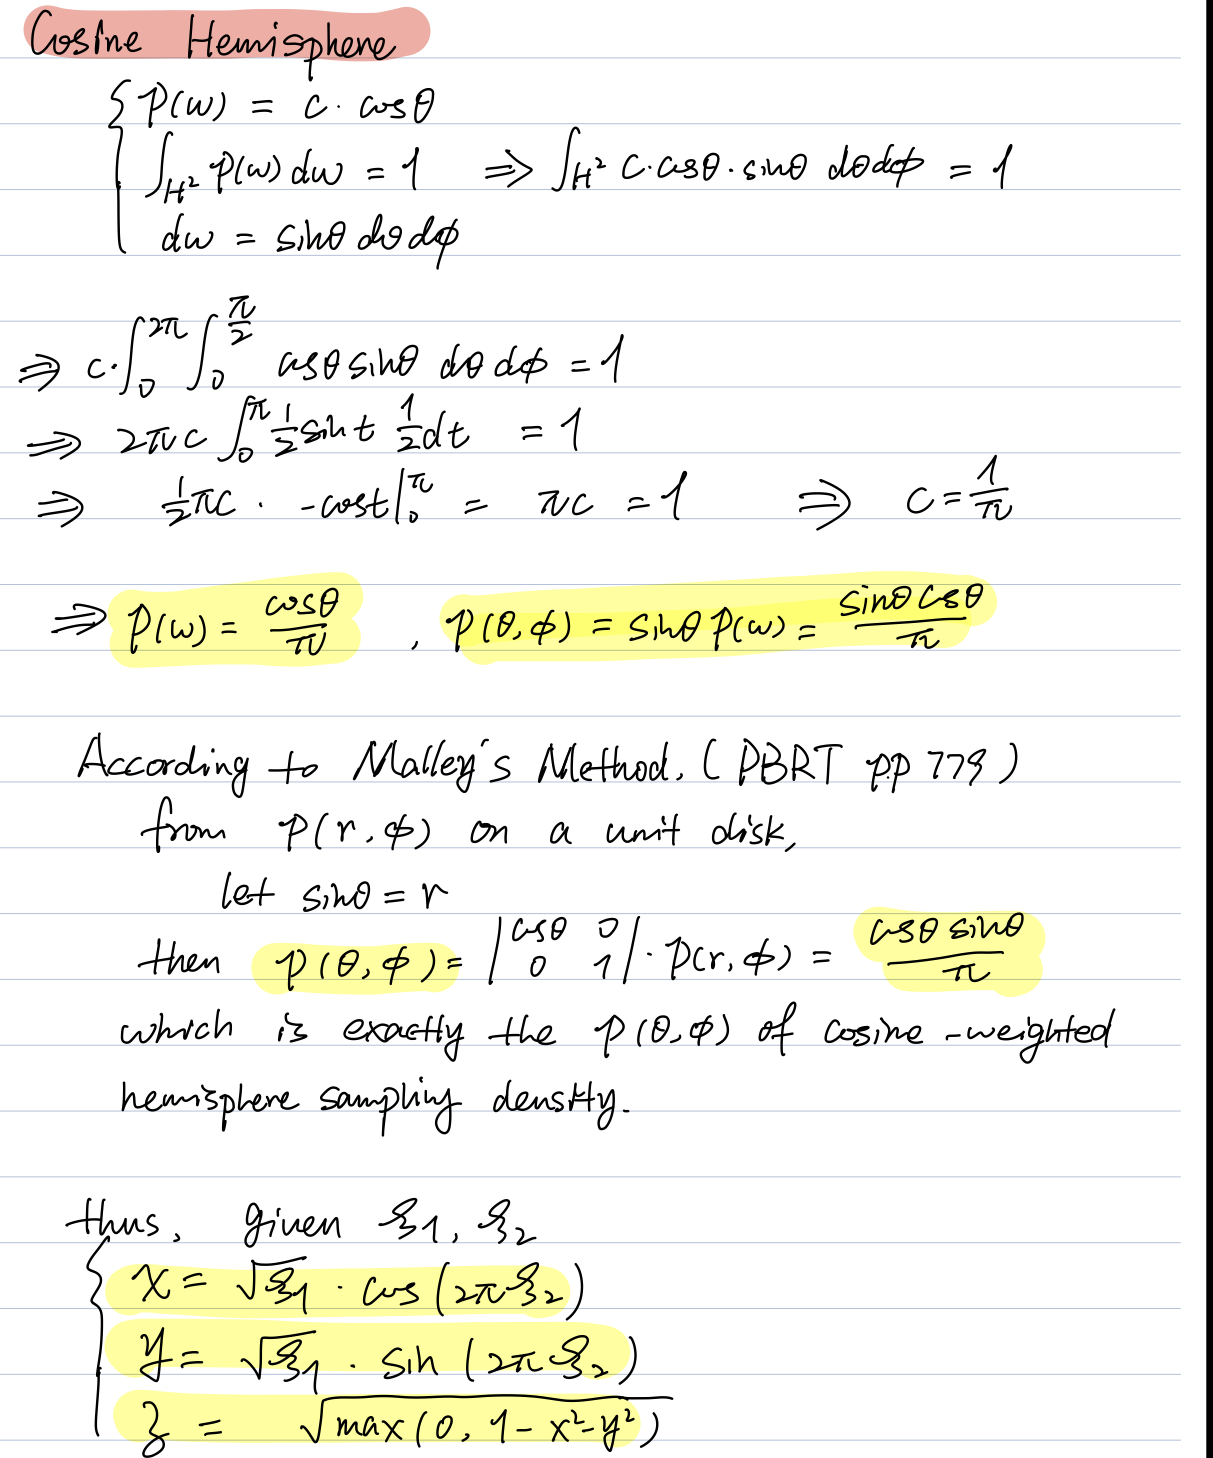 Cosine Hemisphere
{ p(ω) = c · cosθ
∫_{H²} p(ω) dω = 1 ⇒ ∫_{H²} c·cosθ·sinθ dθdϕ = 1
dω = sinθ dθ dϕ
⇒ c·∫_0^{2π} ∫_0^{π/2} cosθ sinθ dθ dϕ = 1
⇒ 2πc ∫_0^π 1/2 sin t 1/2 dt = 1
⇒ 1/2 πc · -cost |_0^π = πc = 1 ⇒ c = 1/π
⇒ p(ω) = cosθ/π , p(θ,ϕ) = sinθ p(ω) = sinθ cosθ/π
According to Malley's Method. (PBRT pp 779)
from p(r,ϕ) on a unit disk,
let sinθ = r
then p(θ,ϕ) = |cosθ 0; 0 1| · p(r,ϕ) = cosθ sinθ/π
which is exactly the p(θ,ϕ) of cosine-weighted
hemisphere sampling density.
thus, given ξ1, ξ2
{ x = √ξ1 · cos(2πξ2)
y = √ξ1 · sin(2πξ2)
z = √max(0, 1-x²-y²)